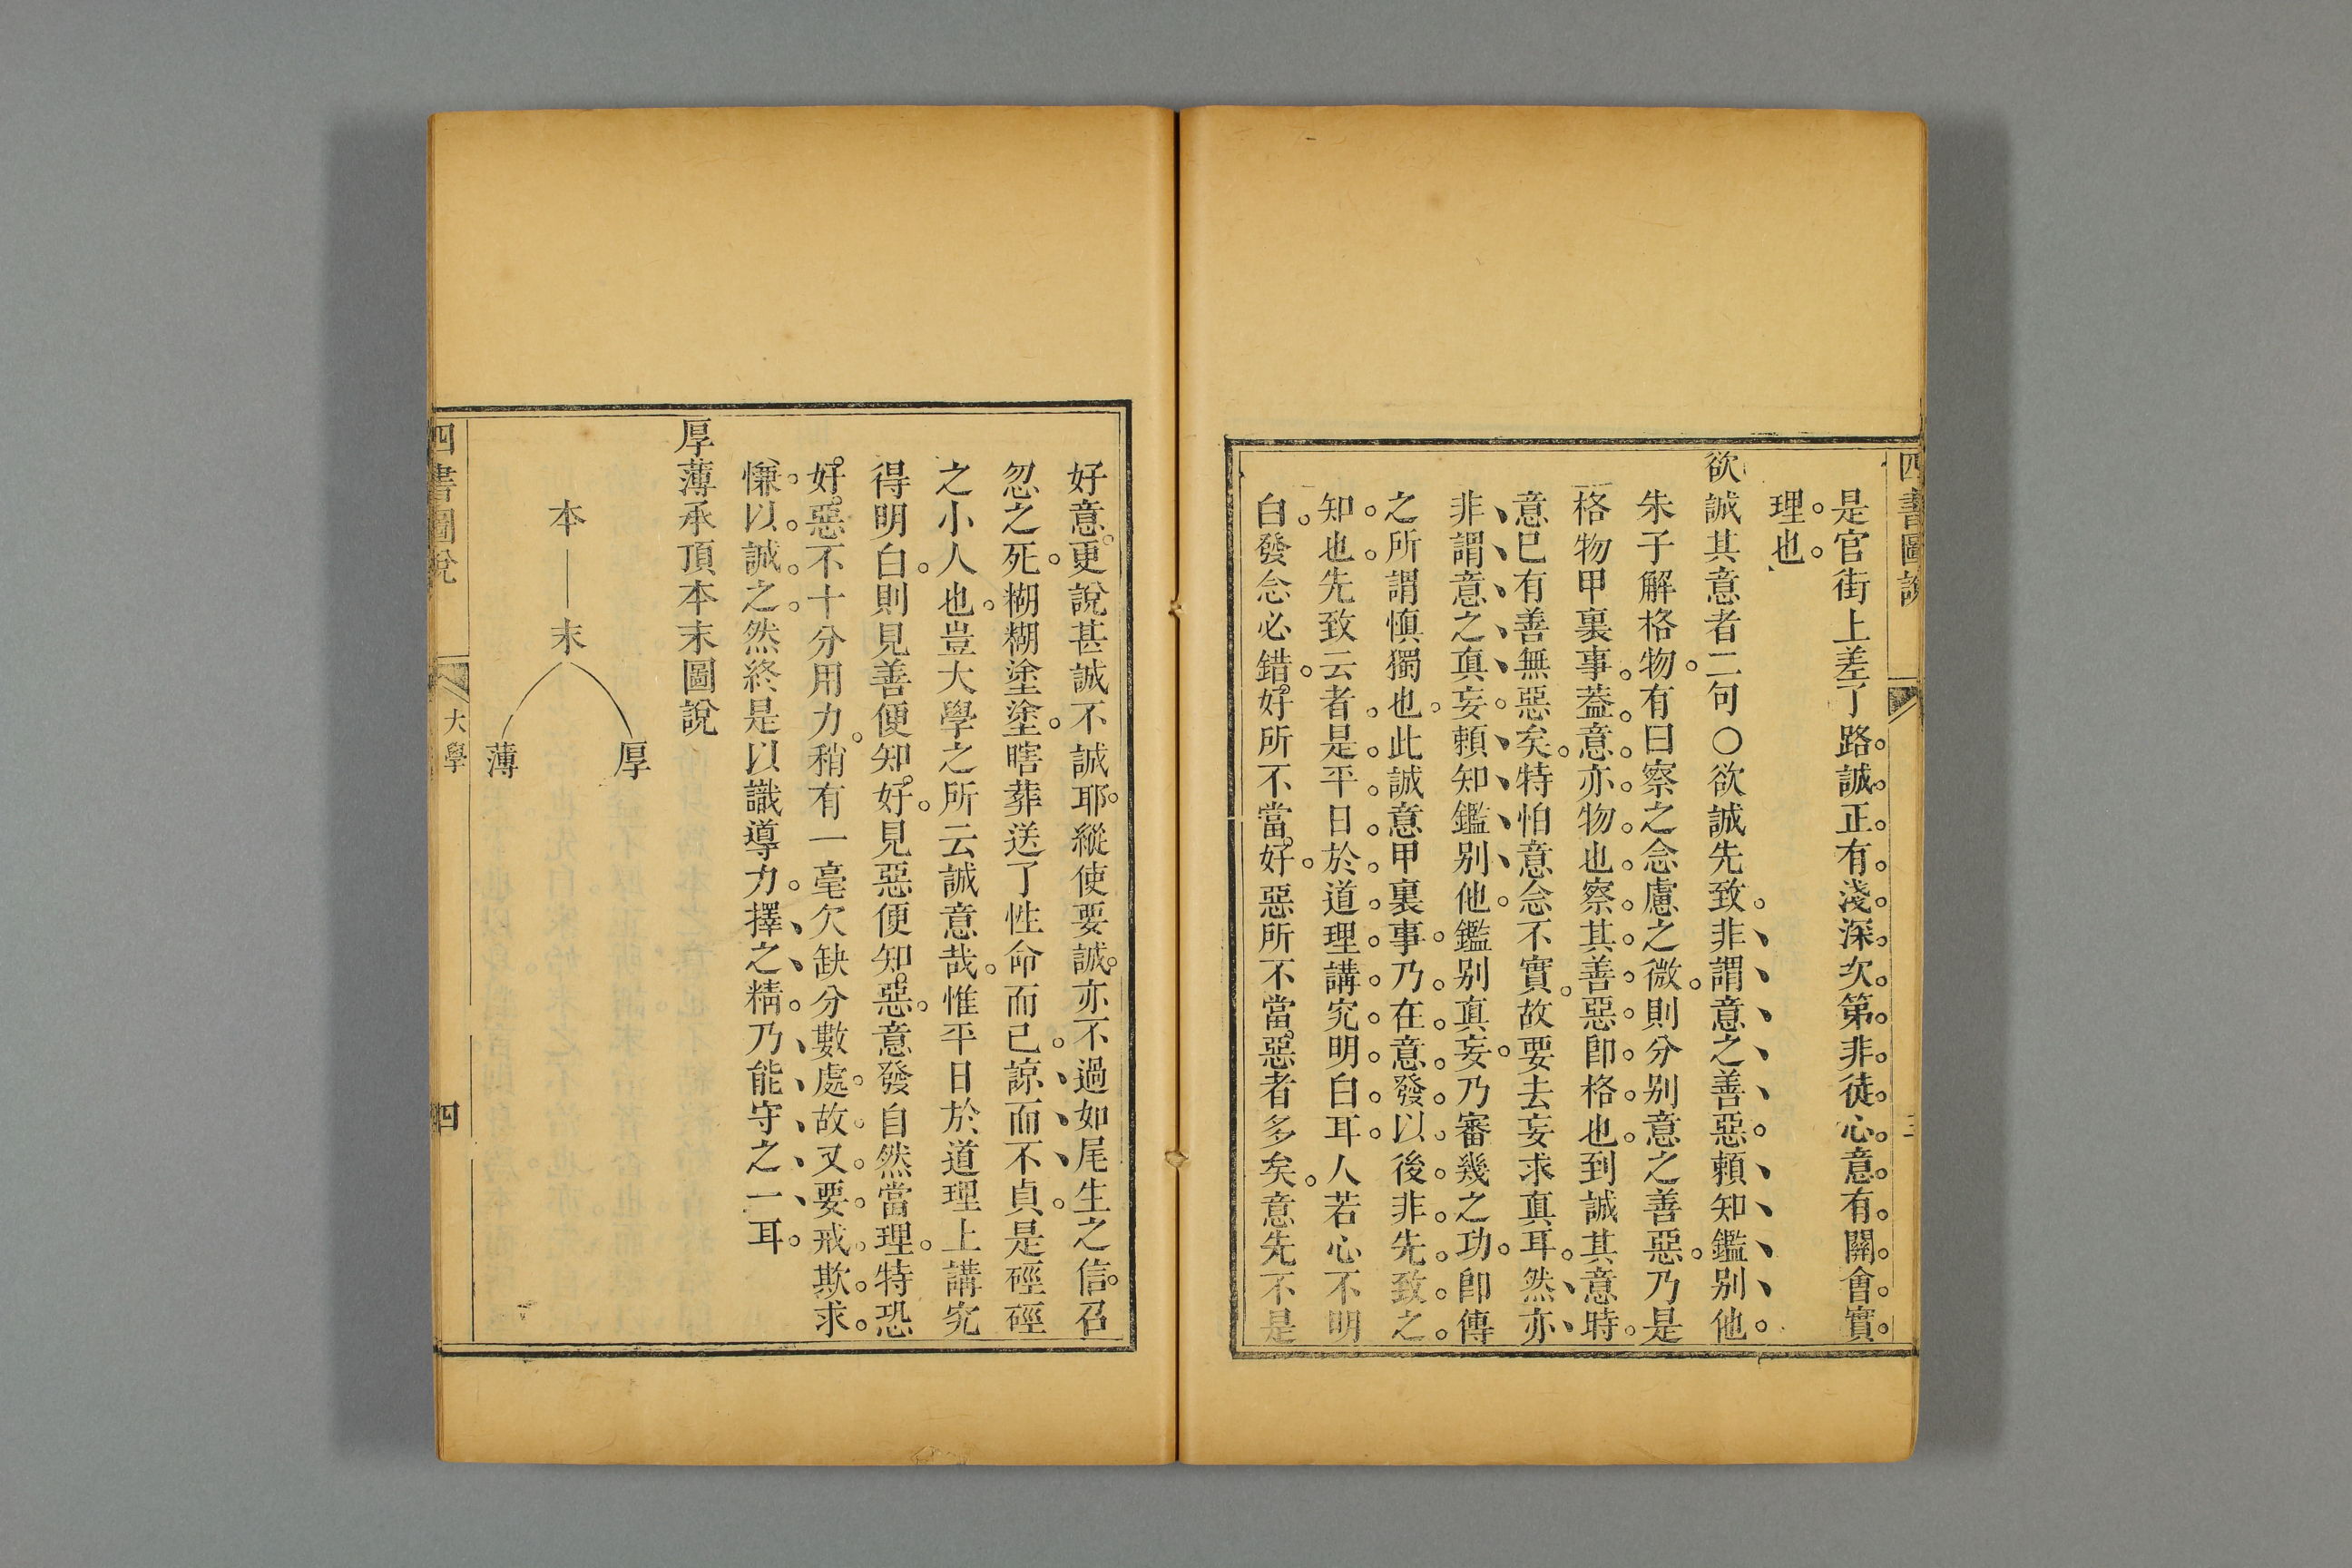 四書圖說
三
是官街上差了路誠正有淺深次第非徒心意有關會實
理也
欲誠其意者二句〇欲誠先致非謂意之善惡頼知鑑别他
朱子解格物有曰察之念慮之微則分别意之善惡乃是
格物甲裏事葢意亦物也察其善惡卽格也到誠其意時
意已有善無惡矣特怕意念不實故要去妄求真耳然亦
非謂意之真妄頼知鑑别他鑑别真妄乃審幾之功卽傳
之所謂慎獨也此誠意甲裏事乃在意發以後非先致之
知也先致云者是平日於道理講究明白耳人若心不明
白發念必錯好所不當好惡所不當惡者多矣意先不是
好意更說甚誠不誠耶縱使要誠亦不過如尾生之信召
忽之死糊糊塗塗瞎葬送了性命而已諒而不貞是硜硜
之小人也豈大學之所云誠意哉惟平日於道理上講究
得明白則見善便知好見惡便知惡意發自然當理特恐
好惡不十分用力稍有一毫欠缺分數處故又要戒欺求
慊以誠之然終是以識導力擇之精乃能守之一耳
厚薄承頂本末圖說
本—末
厚
薄
四書圖說
大學
四